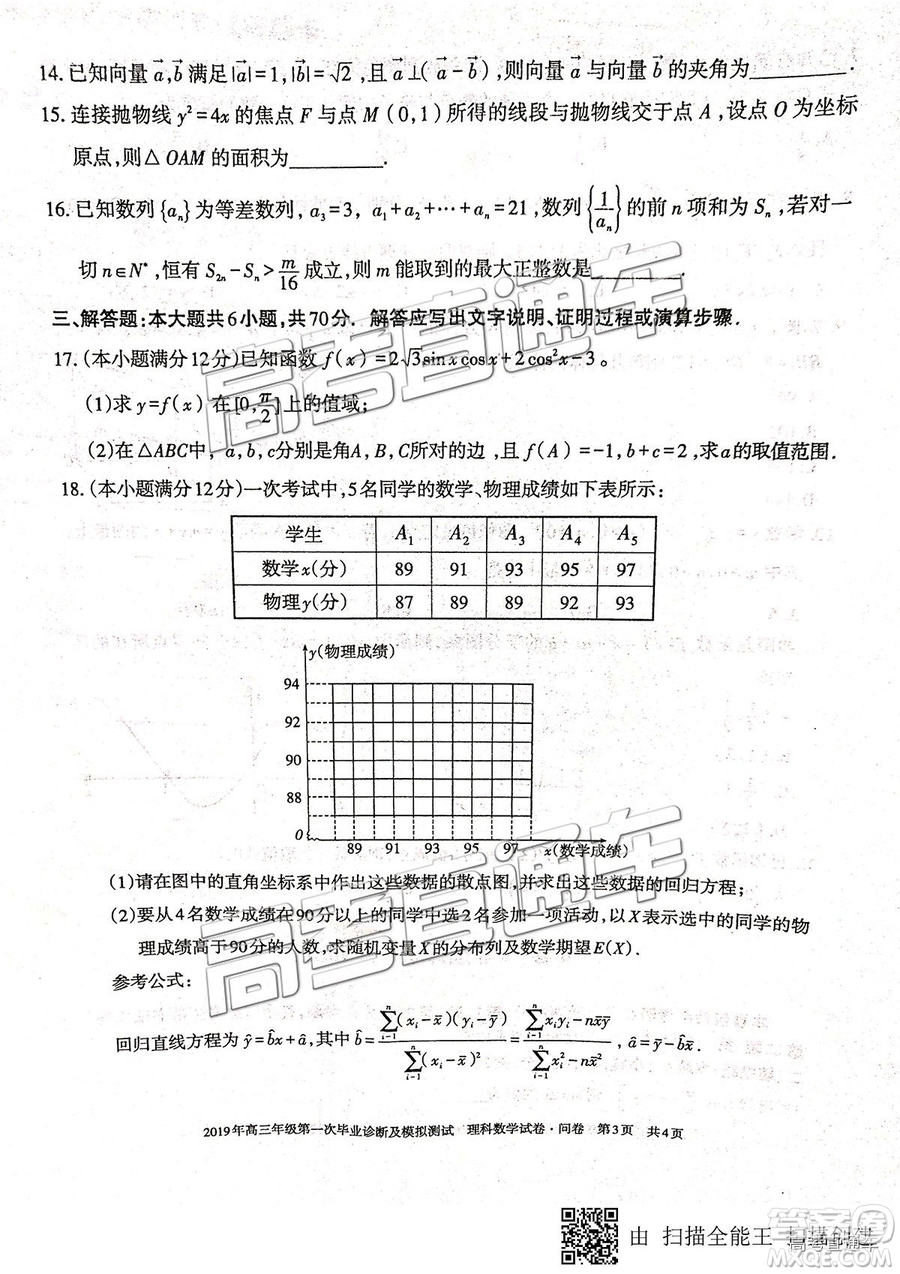 14.已知向量a⃗,b⃗满足|a⃗|=1,|b⃗|=√2,且a⃗⊥(a⃗-b⃗),则向量a⃗与向量b⃗的夹角为________.
15.连接抛物线y²=4x的焦点F与点M(0,1)所得的线段与抛物线交于点A,设点O为坐标
原点,则△OAM的面积为________.
16.已知数列{aₙ}为等差数列,a₃=3,a₁+a₂+⋯+aₙ=21,数列{1/aₙ}的前n项和为Sₙ,若对一
切n∈N*,恒有S₂ₙ-Sₙ>m/16成立,则m能取到的最大正整数是________.
三、解答题:本大题共6小题,共70分.解答应写出文字说明、证明过程或演算步骤.
17.(本小题满分12分)已知函数f(x)=2√3sinxcosx+2cos²x-3。
(1)求y=f(x)在[0,π/2]上的值域;
(2)在△ABC中,a,b,c分别是角A,B,C所对的边,且f(A)=-1,b+c=2,求a的取值范围.
18.(本小题满分12分)一次考试中,5名同学的数学、物理成绩如下表所示:
学生 A₁ A₂ A₃ A₄ A₅
数学x(分) 89 91 93 95 97
物理y(分) 87 89 89 92 93
y(物理成绩)
94
92
90
88
O
89 91 93 95 97
x(数学成绩)
(1)请在图中的直角坐标系中作出这些数据的散点图,并求出这些数据的回归方程;
(2)要从4名数学成绩在90分以上的同学中选2名参加一项活动,以X表示选中的同学的物
理成绩高于90分的人数,求随机变量X的分布列及数学期望E(X).
参考公式:
回归直线方程为ŷ=b̂x+â,其中b̂=∑ⁿᵢ₋₁(xᵢ-x̄)(yᵢ-ȳ)/∑ⁿᵢ₋₁(xᵢ-x̄)²=∑ⁿᵢ₋₁xᵢyᵢ-nx̄ȳ/∑ⁿᵢ₋₁xᵢ²-nx̄²,â=ȳ-b̂x̄.
2019年高三年级第一次毕业诊断及模拟测试 理科数学试卷·问卷 第3页 共4页
高考直通车
高考直通车
由 扫描全能王 扫描创建
答案圈
高考直通车
MXQE.COM